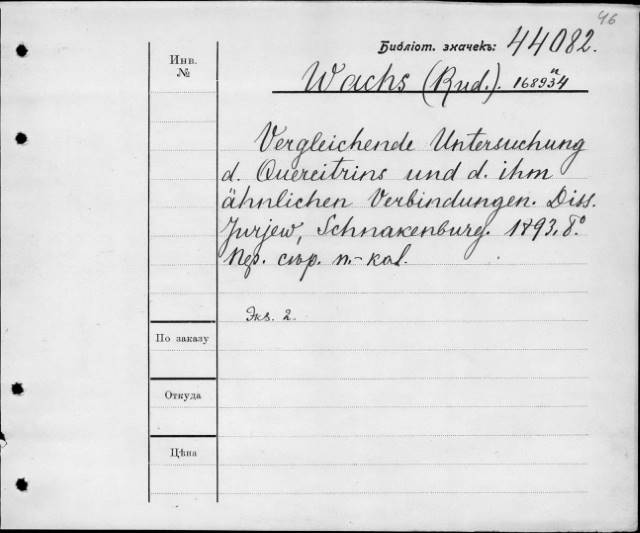 46
Библіот. значекъ: 44082.
Инв.
№
Wachs (Rud.). 168934
Vergleichende Untersuchung
d. Quercitrins und d. ihm
ähnlichen Verbindungen. Diss.
Jurjew, Schnakenburg. 1893. 8°
Экз. 2.
По заказу
Откуда
Цѣна